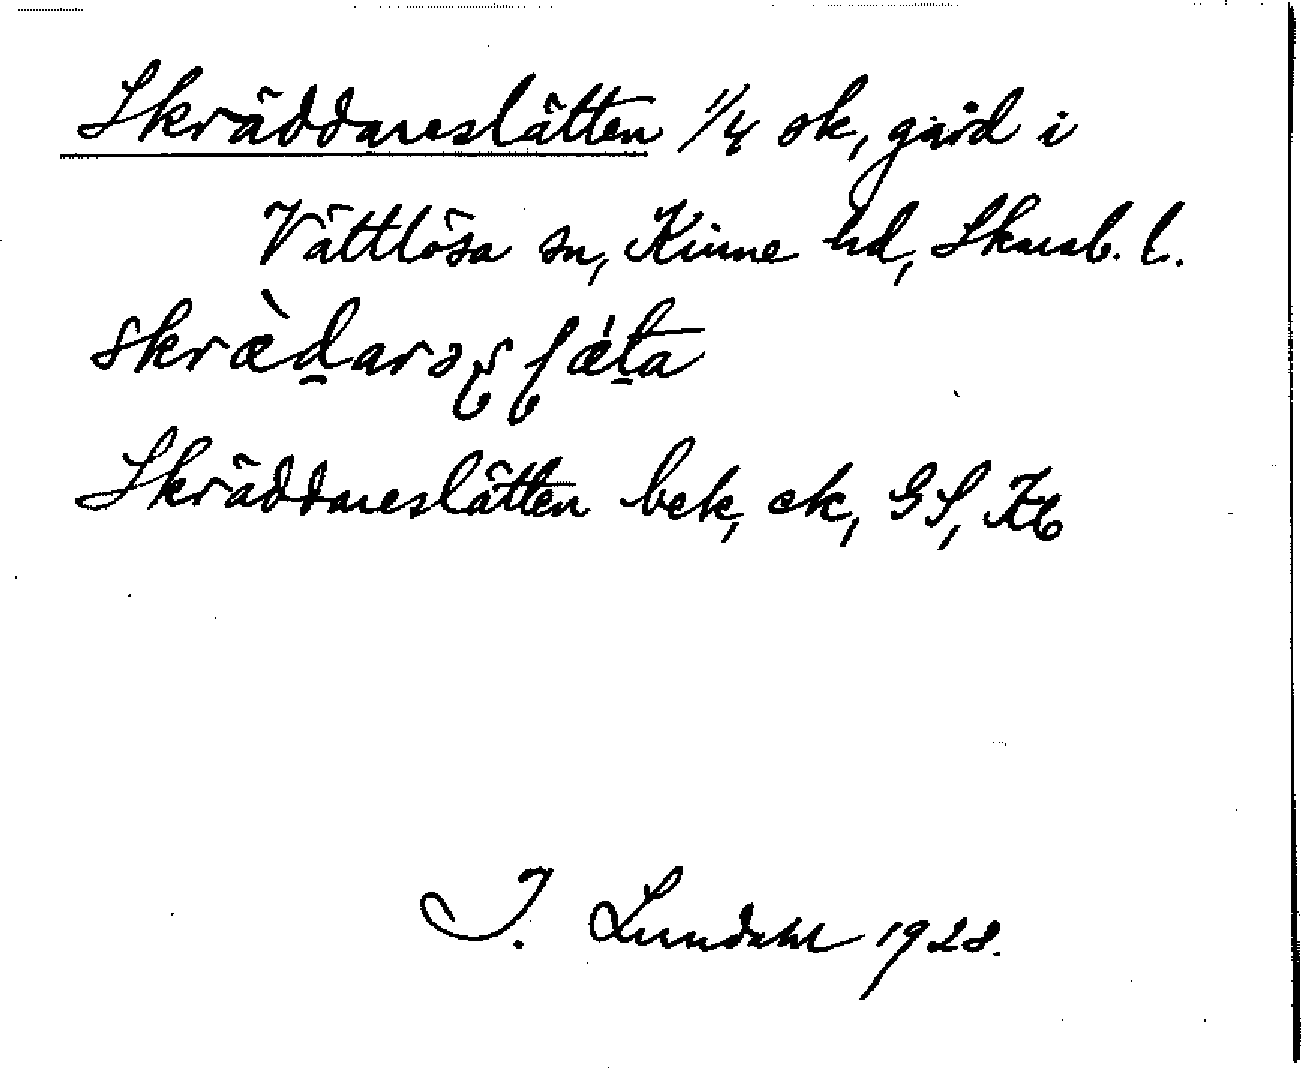 Skräddareslätten 1/4 sk, gård i
Vättlösa sn, Kinne hd, Skarab. l.
Skräddareslätten bek, ek, GS, Kb
I. Lundahl 1928.